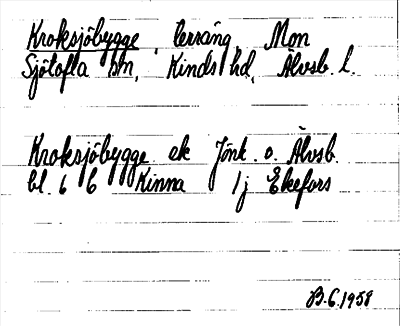 Kroksjöbygge, terräng, Mon
Sjötofta sn, Kinds hd, Älvsb. l.
Kroksjöbygge ek Jönk. o. Älvsb.
bl. 6 6 Kinna 1j Ekefors
B.G. 1958